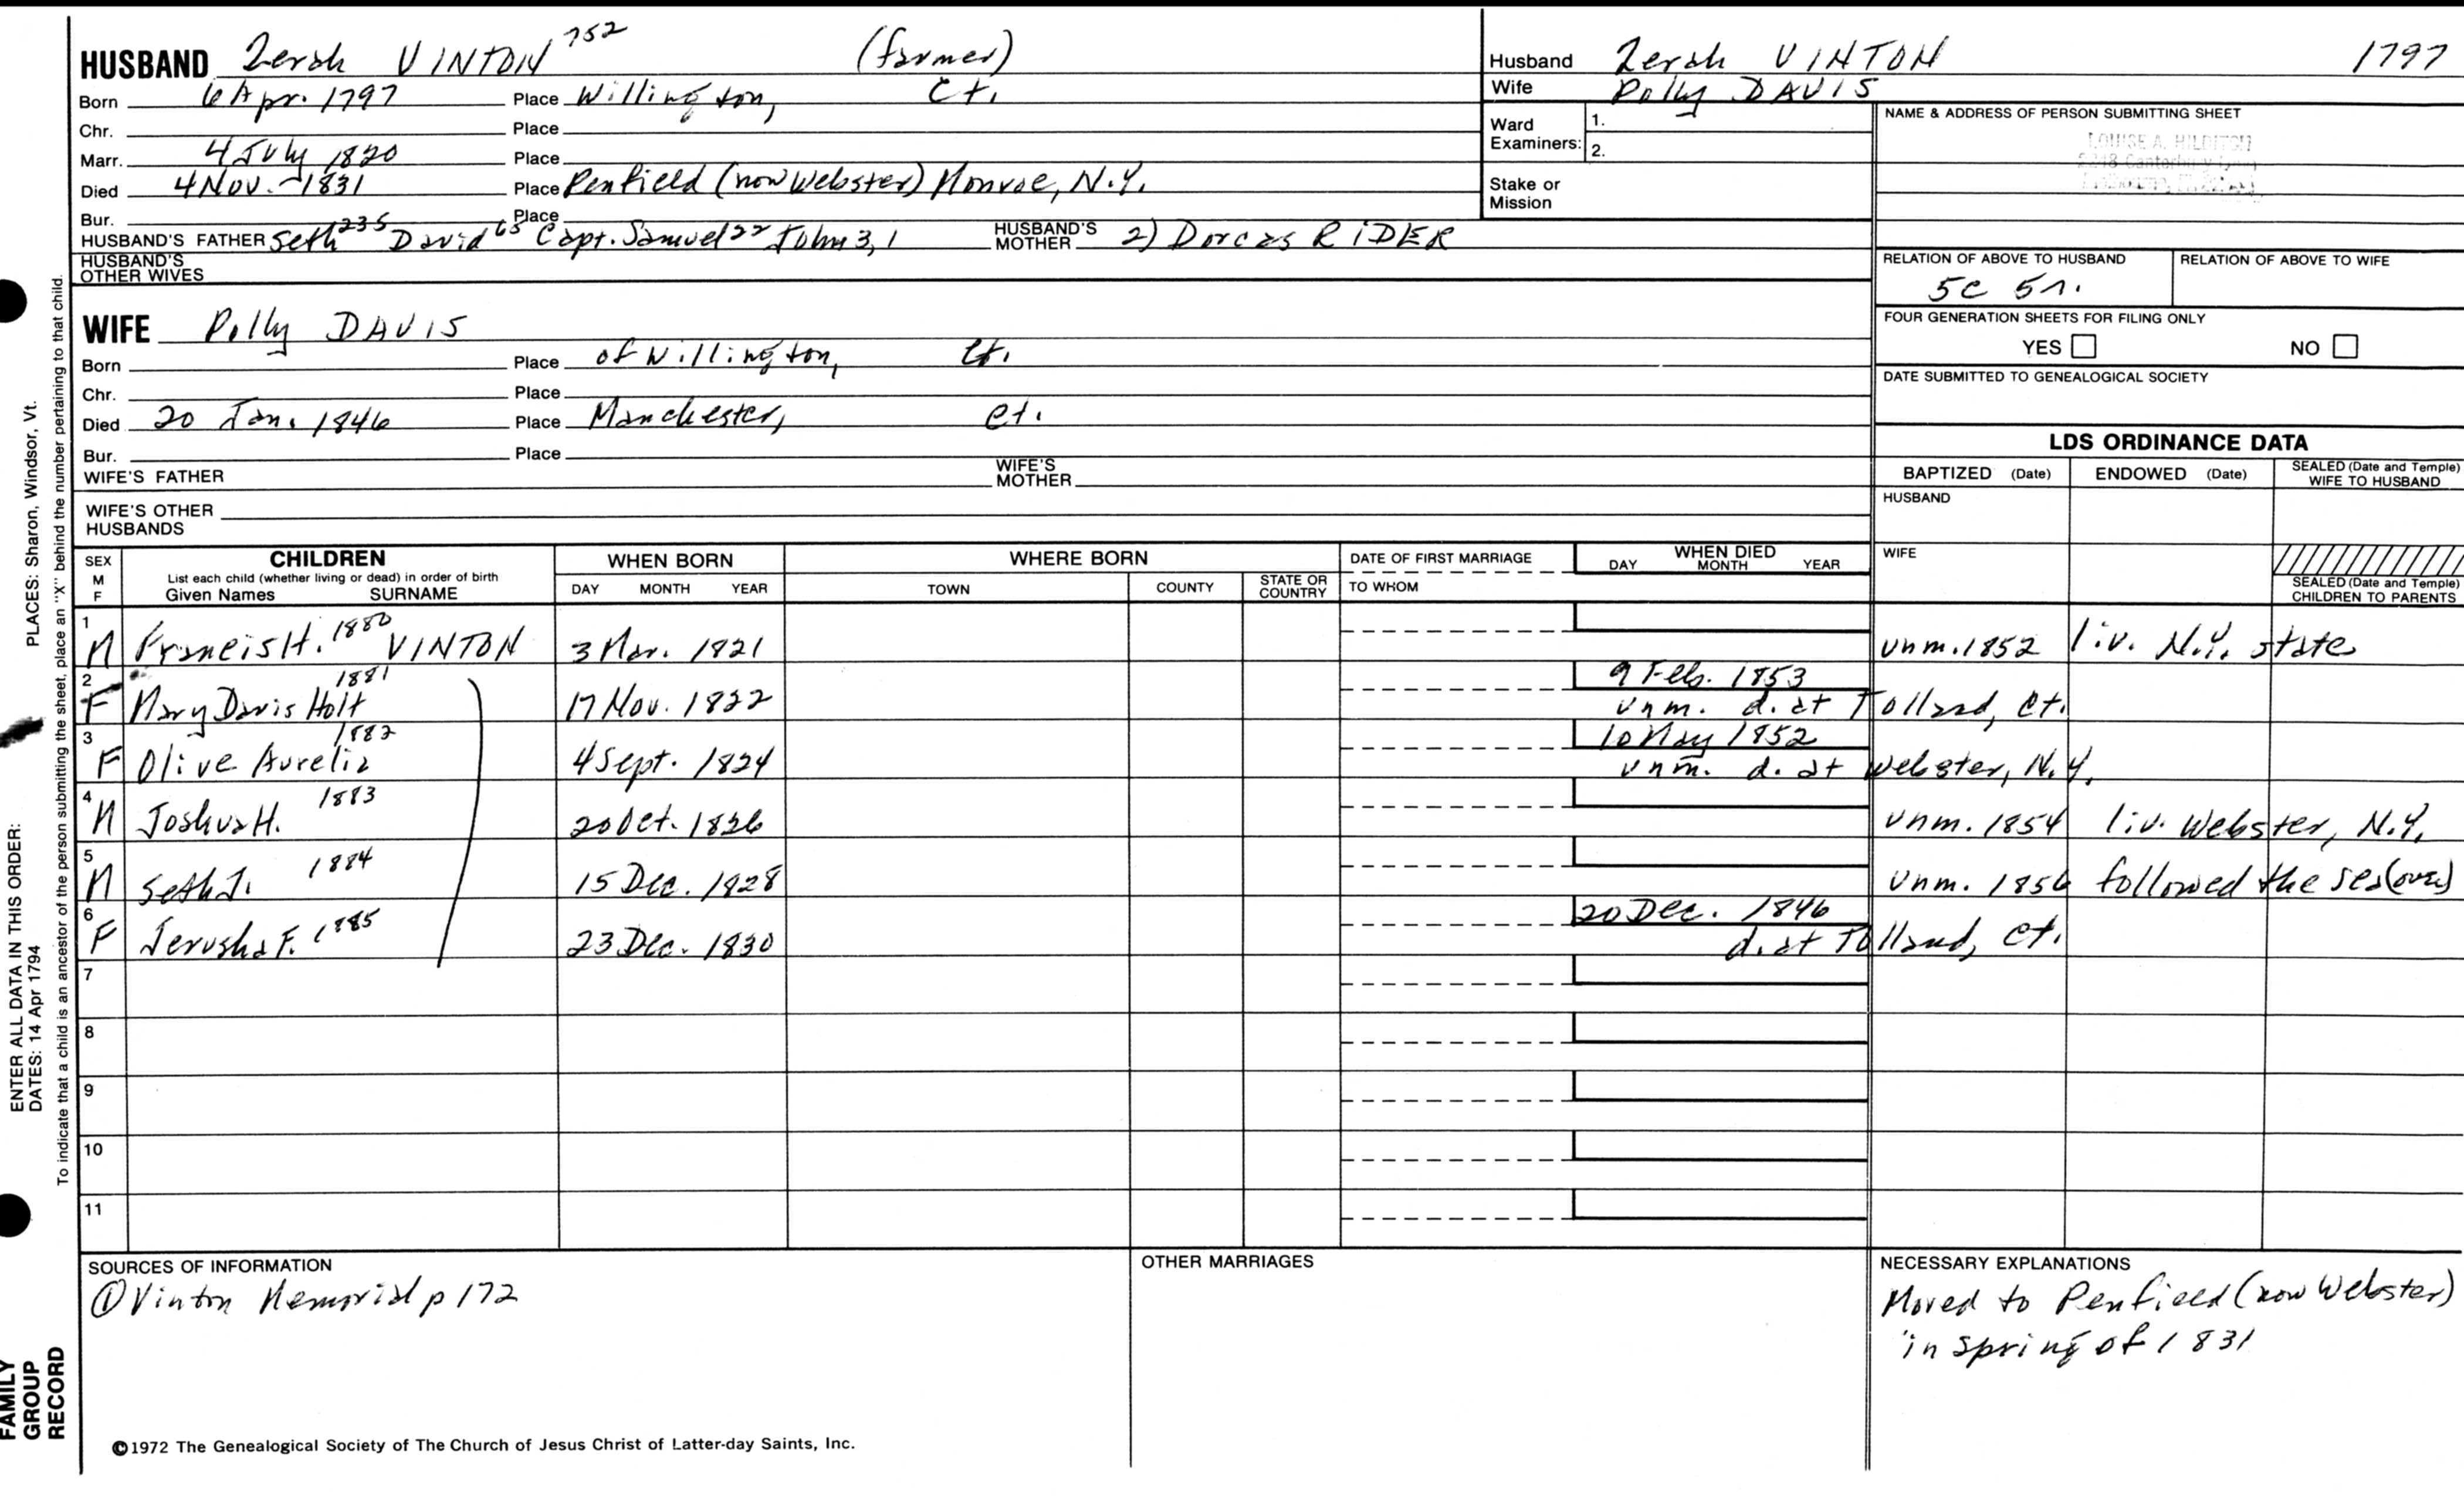 HUSBAND Zerah VINTON 752 (farmer)
Born 6 Apr. 1797 Place Willington, Ct.
Chr. Place
Marr. 4 July 1820 Place
Died 4 Nov. 1831 Place Penfield (now Webster) Monroe, N.Y.
Bur. Place
HUSBAND'S FATHER Seth 235 David 65 Capt. Samuel 22 John 3, 1 HUSBAND'S MOTHER 2) Dorcas RIDER
HUSBAND'S OTHER WIVES
WIFE Polly DAVIS
Born Place of Willington, Ct.
Chr. Place
Died 20 Jan. 1846 Place Manchester, Ct.
Bur. Place
WIFE'S FATHER WIFE'S MOTHER
WIFE'S OTHER HUSBANDS
Husband Zerah VINTON 1797
Wife Polly DAVIS
Ward Examiners: 1.
2.
Stake or Mission
NAME & ADDRESS OF PERSON SUBMITTING SHEET
LOUISE A. HILDITCH
RELATION OF ABOVE TO HUSBAND RELATION OF ABOVE TO WIFE
5c 5r.
FOUR GENERATION SHEETS FOR FILING ONLY
YES NO
DATE SUBMITTED TO GENEALOGICAL SOCIETY
LDS ORDINANCE DATA
BAPTIZED (Date) ENDOWED (Date) SEALED (Date and Temple) WIFE TO HUSBAND
HUSBAND
WIFE
SEALED (Date and Temple) CHILDREN TO PARENTS
SEX M F CHILDREN List each child (whether living or dead) in order of birth Given Names SURNAME
WHEN BORN DAY MONTH YEAR
WHERE BORN TOWN COUNTY STATE OR COUNTRY
DATE OF FIRST MARRIAGE TO WHOM
WHEN DIED DAY MONTH YEAR
1 M Francis H. 1880 VINTON 3 Mar. 1821 unm. 1852 liv. N.Y. state
2 F Mary Davis Holt 1881 17 Nov. 1822 9 Feb. 1853
unm. d. at Tolland, Ct.
3 F Olive Aurelia 1882 4 Sept. 1824 10 May 1852
unm. d. at Webster, N.Y.
4 M Joshua H. 1883 20 Oct. 1826 unm. 1854 liv. Webster, N.Y.
5 M Seth J. 1884 15 Dec. 1828 unm. 1856 followed the sea (over)
6 F Jerusha F. 1885 23 Dec. 1830 20 Dec. 1846
d. at Tolland, Ct.
7
8
9
10
11
SOURCES OF INFORMATION
① Vinton Memorial p 172
OTHER MARRIAGES
NECESSARY EXPLANATIONS
Moved to Penfield (now Webster)
in spring of 1831
©1972 The Genealogical Society of The Church of Jesus Christ of Latter-day Saints, Inc.
FAMILY GROUP RECORD
ENTER ALL DATA IN THIS ORDER:
DATES: 14 Apr 1794
PLACES: Sharon, Windsor, Vt.
To indicate that a child is an ancestor of the person submitting the sheet, place an "X" behind the number pertaining to that child.